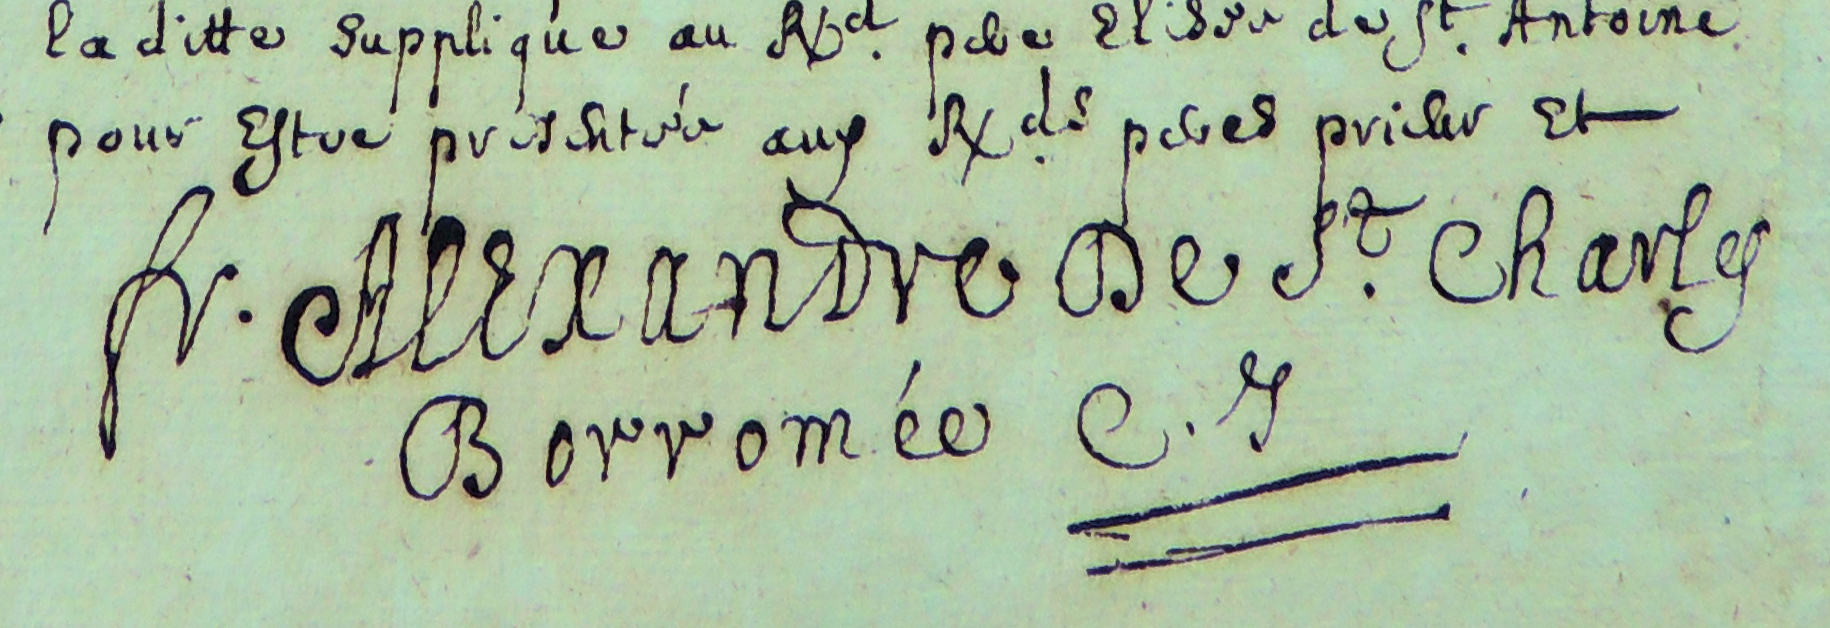 laditte Supplique au Rd. pere Elisée de St. Antoine
pour Estre présentée aux Rds. peres prieur Et
fr. Alexandre De St. Charles
Borromée C. I